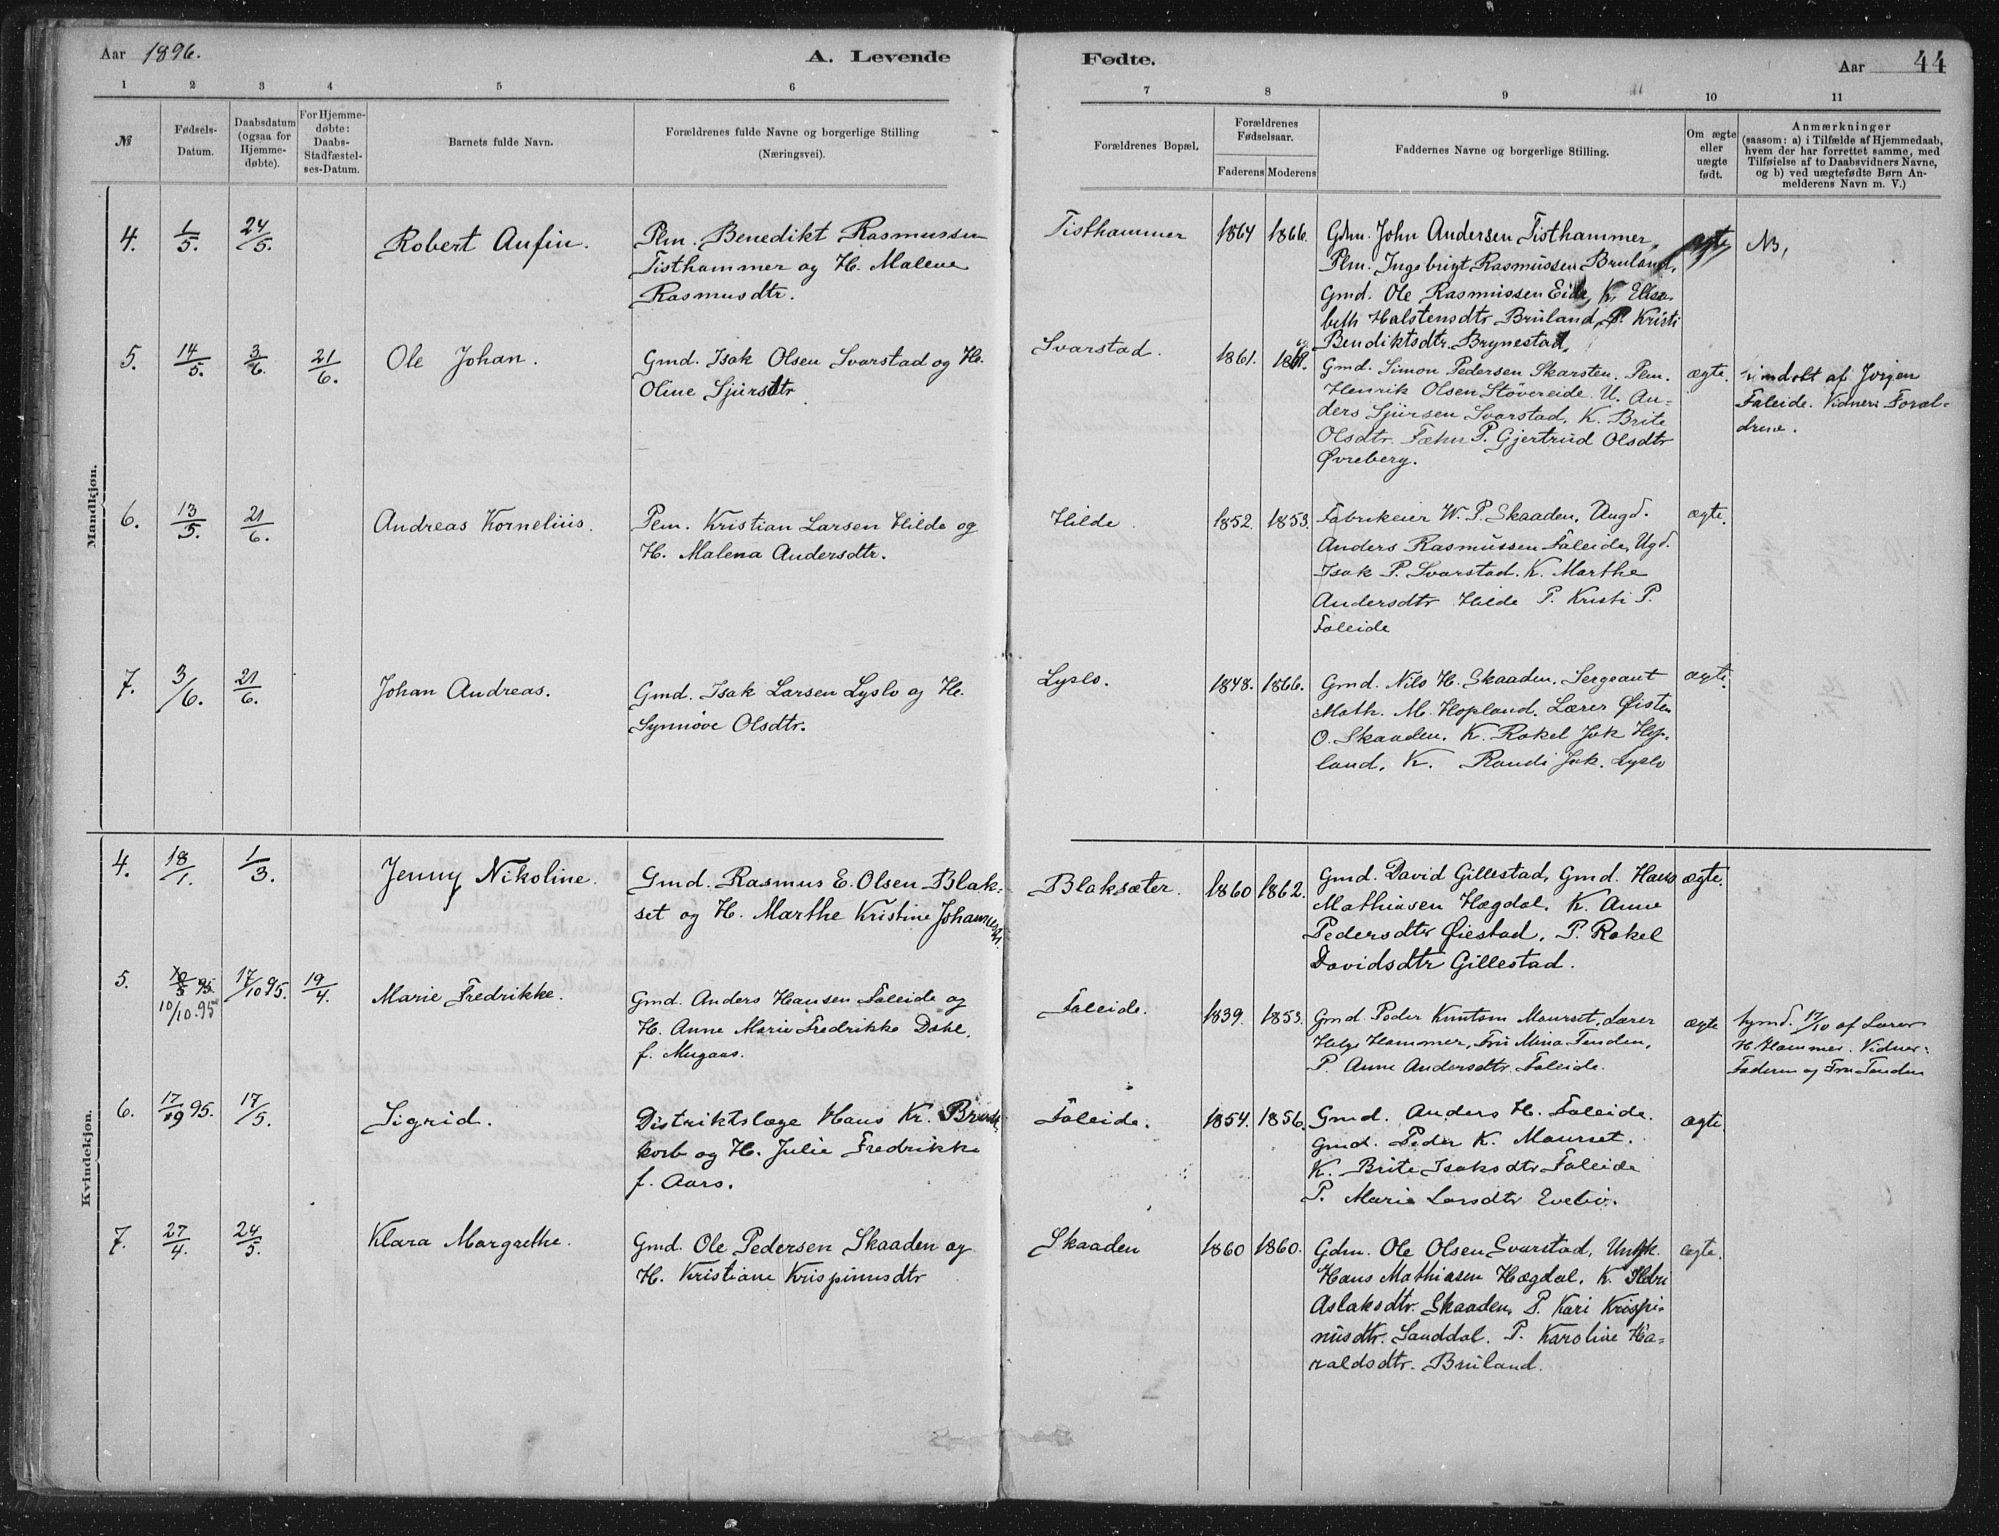 Aar 1896.
A. Levende
Fødte.
Aar
44
1 2 3 4 5 6
7 8 9 10 11
№
Fødsels-
Datum.
Daabsdatum
(ogsaa for
Hjemme-
døbte).
For Hjemme-
døbte:
Daabs-
Stadfæstel-
ses-Datum.
Barnets fulde Navn.
Forældrenes fulde Navne og borgerlige Stilling
(Næringsvei).
Forældrenes Bopæl.
Forældrenes
Fødselsaar.
Faderens Moderens
Faddernes Navne og borgerlige Stilling.
Om ægte
eller
uægte
født.
Anmærkninger
(saasom: a) i Tilfælde af Hjemmedaab,
hvem der har forrettet samme, med
Tilføielse af to Daabsvidners Navne,
og b) ved uægtefødte Børn An-
melderens Navn m. V.)
Mandkjøn.
4. 1/5. 24/5. Robert Anfin.
Plm. Benedikt Rasmussen
Tisthammer og H. Malene
Rasmusdtr.
Tisthammer 1864 1866.
Gdm. John Andersen Tisthammer,
Plm. Ingebrigt Rasmussen Bruland,
Gmd. Ole Rasmussen Eide, K. Elisa-
beth Halstensdtr Bruland, P. Kristi
Bendiktsdtr. Brynestad,
ægte NB,
5. 14/5. 3/6. 21/6. Ole Johan.
Gmd. Isak Olsen Svarstad og H.
Oline Sjursdtr
Svarstad. 1861.
Gmd. Simon Pedersen Skarsten. Plm.
Henrik Olsen Støvereide. U. An-
ders Sjursen Svarstad, K. Brite
Olsdtr. Fæhn P. Gjertrud Olsdtr
Øvreberg.
ægte.
af Jørgen
Faleide. Vidner: Foræl-
drene.
6. 13/5. 21/6. Andreas Kornelius.
Plm. Kristian Larsen Hilde og
H. Malena Andersdtr.
Hilde. 1852. 1853.
Fabrikeier W. P. Skaaden, Ungd.
Anders Rasmussen Faleide, Ugd.
Isak P. Svarstad. K. Marthe
Andersdtr Hilde P. Kristi P.
Faleide
ægte.
7. 3/6. 21/6. Johan Andreas.
Gmd. Isak Larsen Lyslo og H.
Synnøve Olsdtr.
Lyslo. 1848. 1866.
Gmd. Nils H. Skaaden, Sergeant
Math. M. Hopland. Lærer Østen
O. Skaaden. K. Rakel Jak Hop-
land, K. Randi Jak. Lyslo
ægte.
Kvindekjøn.
4. 18/1. 1/3. Jenny Nikoline.
Gmd. Rasmus E. Olsen Blak-
set og H. Marthe Kristine Johannesdtr.
Blaksæter. 1860 1862.
Gmd. David Gillestad, Gmd. Hans
Mathiasen Hægdal, K. Anne
Pedersdtr Øiestad, P. Rakel
Davidsdtr Gillestad.
ægte.
5. 10/10. 95 17/10 95. 19/4. Marie Fredrikke.
Gmd. Anders Hansen Faleide og
H. Anne Marie Fredrikke Dahl
f. Mugaas.
Faleide. 1839. 1853.
Gmd. Peder Knutsen Maurset. Lærer
Helge Hammer, Fru Mina Tenden,
P Anne Andersdtr. Faleide.
ægte
hjmd. 17/10 af Lærer
H. Hammer. Vidner:
Faderen og Fru Tenden
6. 17/9 95. 17/5. Sigrid.
Distriktslæge Hans Kr. Brun-
korb og H. Julie Fredrikke
f. Aars.
Faleide. 1854. 1856.
Gmd. Anders H. Faleide.
Gmd. Peder K. Maurset.
K. Brite Isaksdtr Faleide
P. Marie Larsdtr Evebø.
ægte.
7. 27/4. 24/5. Klara Margrethe.
Gmd. Ole Pedersen Skaaden og
H. Kristiane Krispinusdtr
Skaaden 1860 1860.
Gdm. Ole Olsen Svarstad, Ungk.
Hans Mathiasen Hægdal, K.
Aslaksdtr. Skaaden, P. Kari Krispi-
nusdtr. Sanddal. P. Karoline Ha-
raldsdtr. Bruland.
ægte.